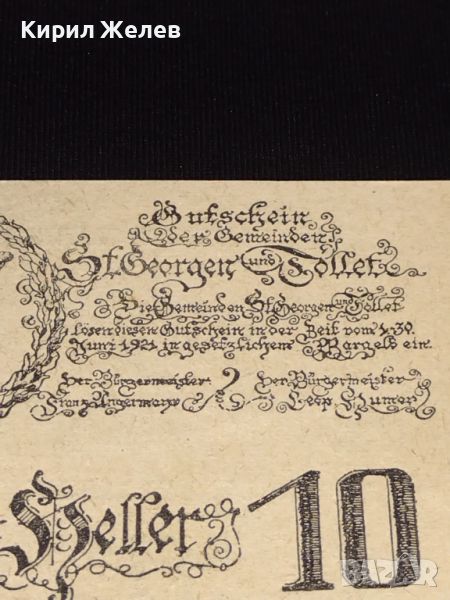 Кирил Желев
Gutschein
der Gemeinden
St. Georgen und Tollet
Die Gemeinden St. Georgen und Tollet
lösen diesen Gutschein in der Zeit vom 1.-30.
Juni 1921 in gesetzlichem Bargeld ein.
Der Bürgermeister Der Bürgermeister
Franz Leop. Humer
Heller 10
BAZAR